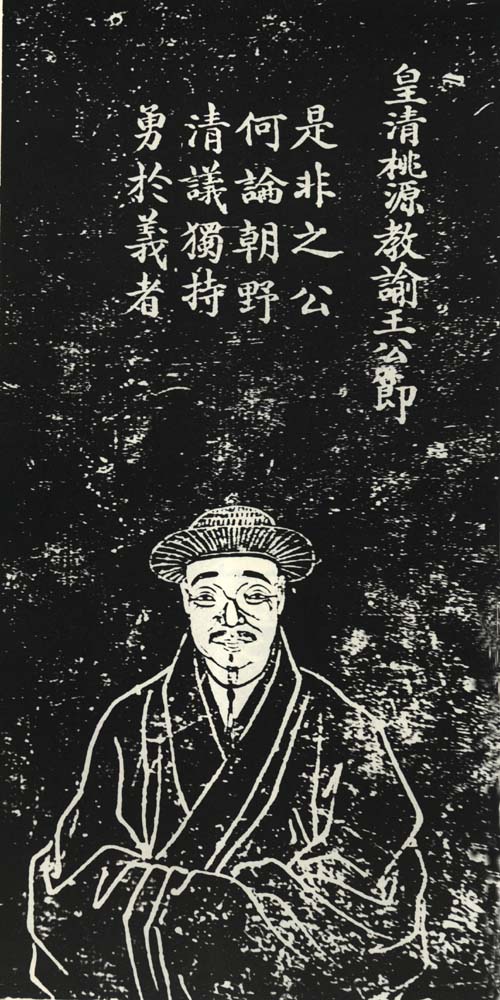 皇清桃源教諭王公節
是非之公
何論朝野
清議獨持
勇於義者